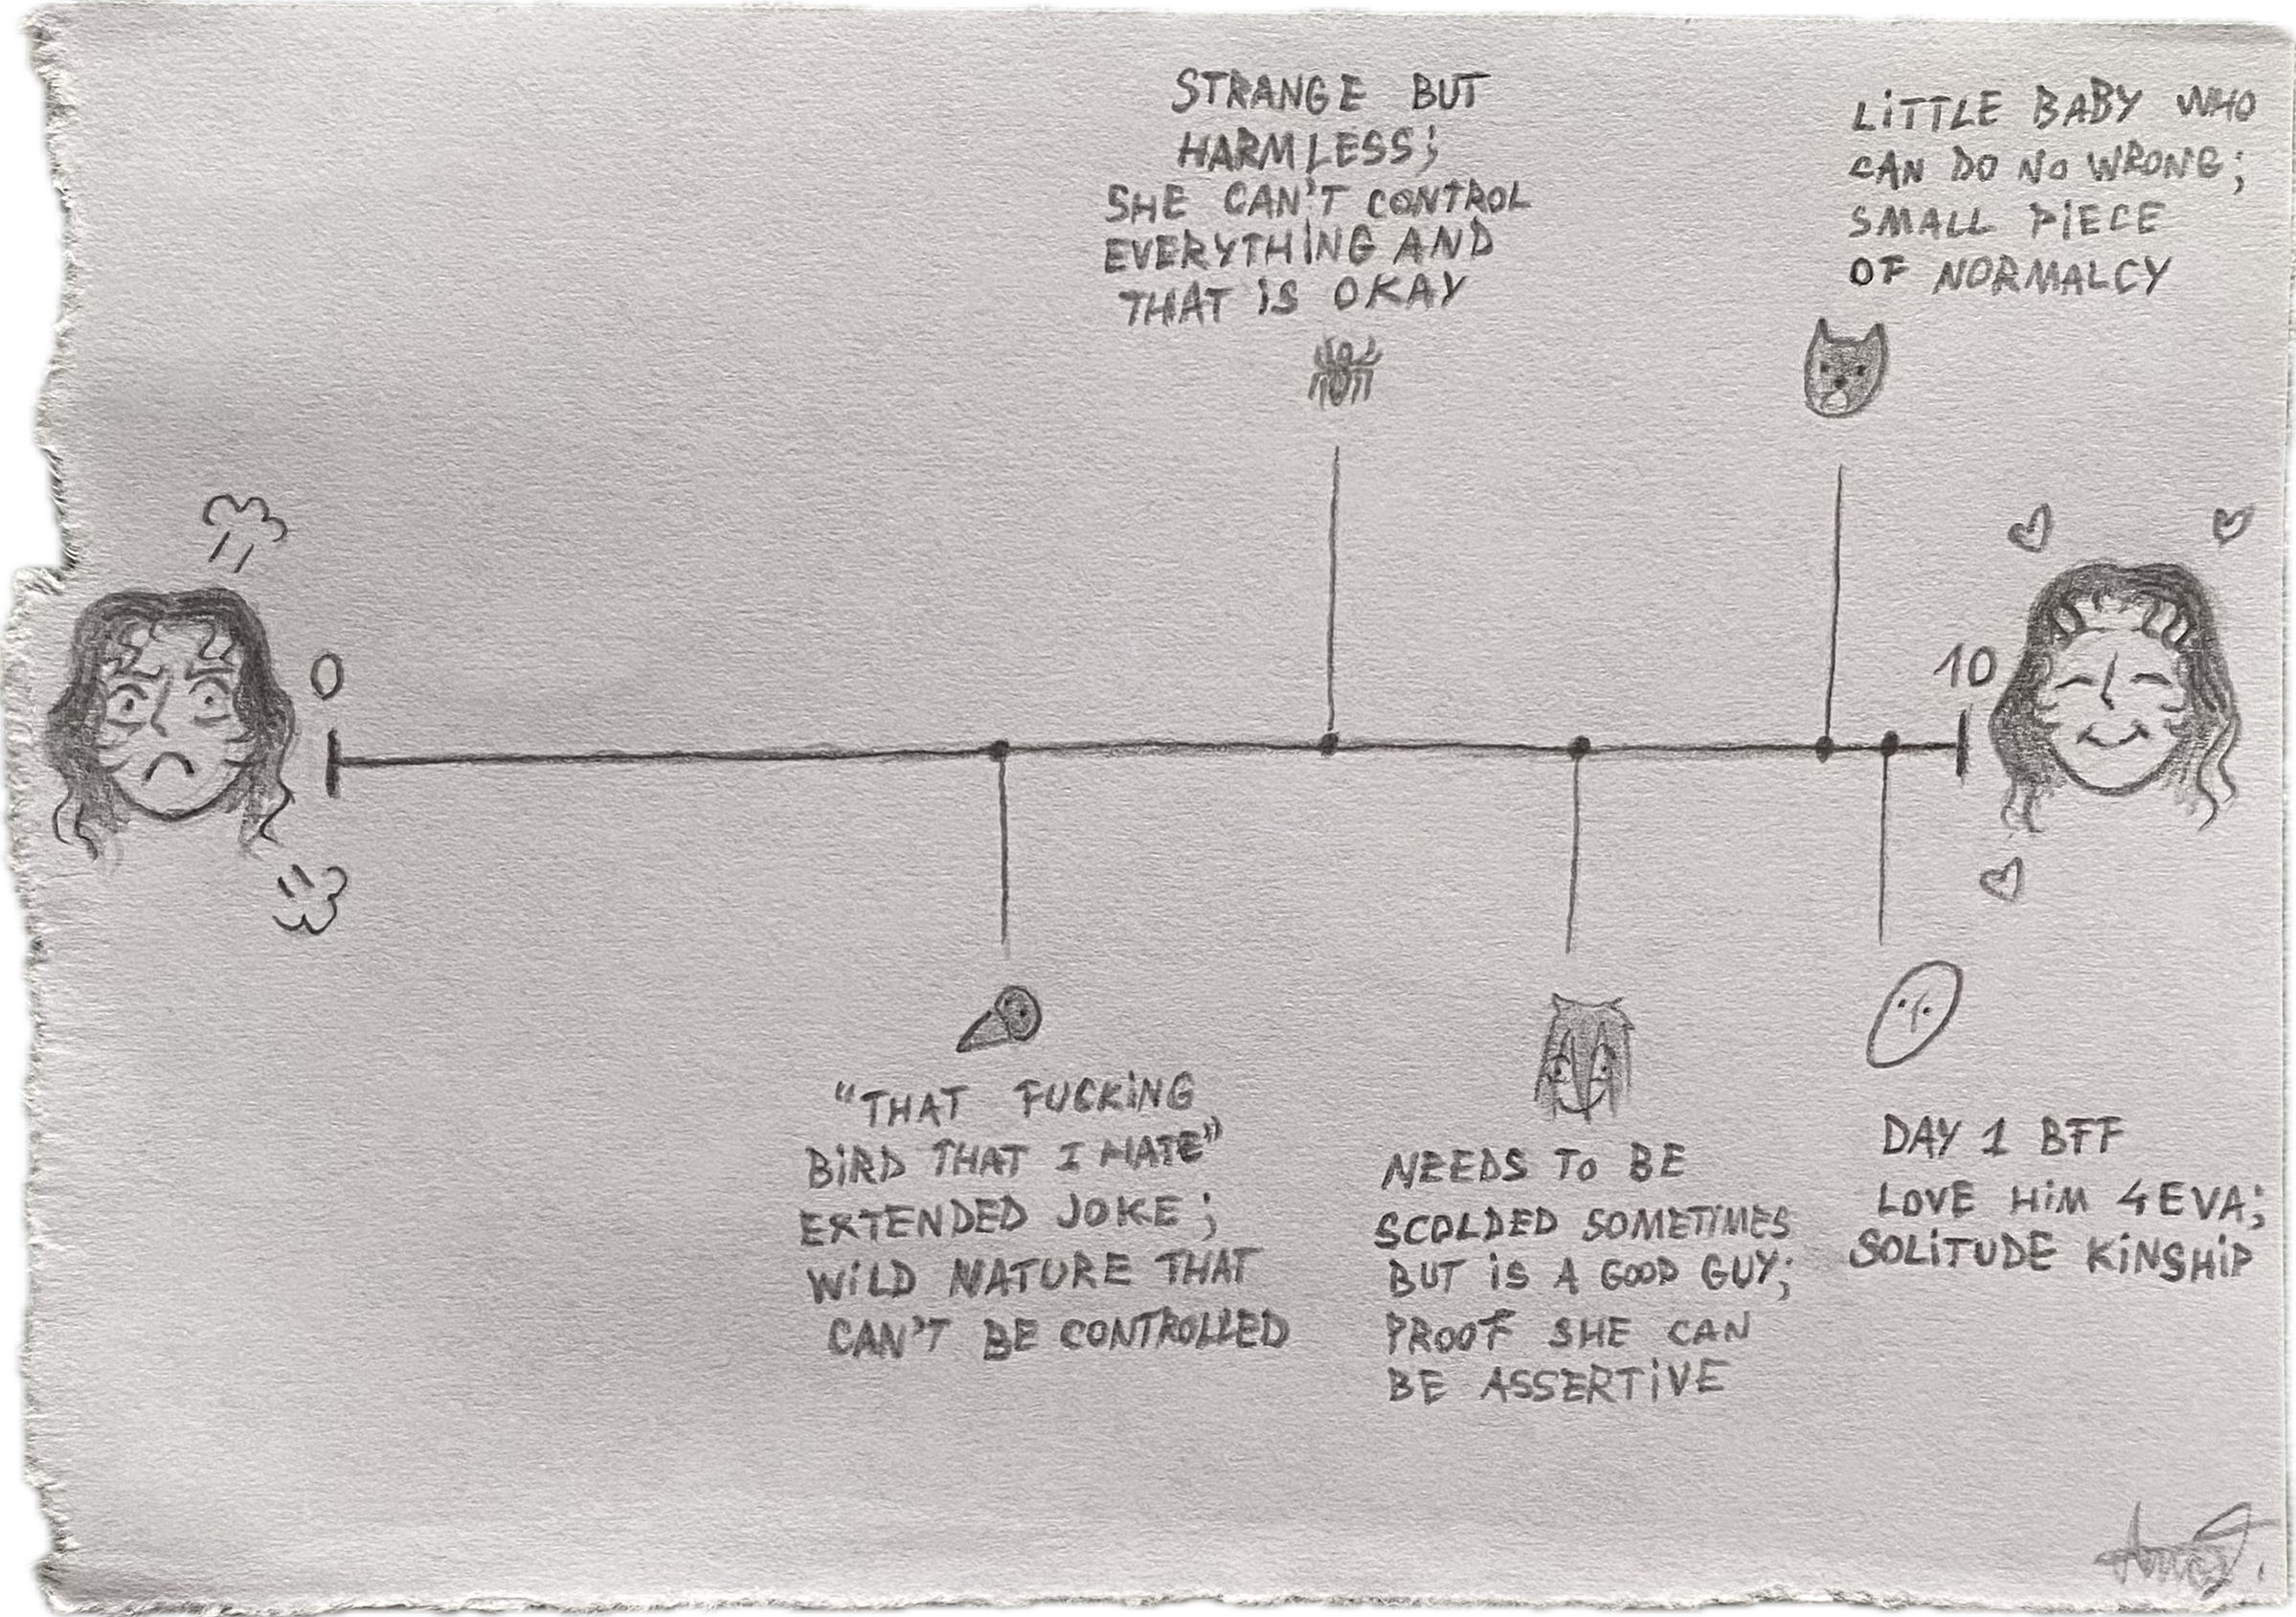 STRANGE BUT
HARMLESS;
SHE CAN'T CONTROL
EVERYTHING AND
THAT IS OKAY
LITTLE BABY WHO
CAN DO NO WRONG;
SMALL PIECE
OF NORMALCY
0
10
"THAT FUCKING
BIRD THAT I HATE"
EXTENDED JOKE;
WILD NATURE THAT
CAN'T BE CONTROLLED
NEEDS TO BE
SCOLDED SOMETIMES
BUT IS A GOOD GUY;
PROOF SHE CAN
BE ASSERTIVE
DAY 1 BFF
LOVE HIM 4EVA;
SOLITUDE KINSHIP